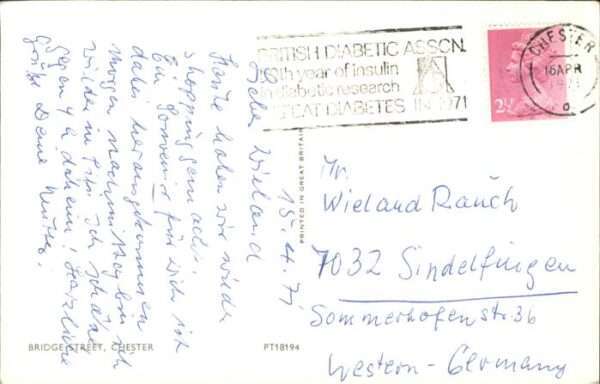 BRITISH DIABETIC ASSCN.
th year of insulin
in diabetic research
DEFEAT DIABETES IN 1971
CHESTER
16 APR
1971
2½
15.4.71
Lieber Wieland
Heute haben wir wieder
shopping gemacht.
Ein Souvenir für dich ist
dabei herausgekommen
Morgen nachmittag bin ich
wieder in Ich schätze
gegen 4 h daheim! Herzliche
Grüße Deine Mutter.
PRINTED IN GREAT BRITAIN
Wieland Rauch
7032 Sindelfingen
Sommerhofenstr. 36
Western-Germany
BRIDGE STREET, CHESTER
PT18194